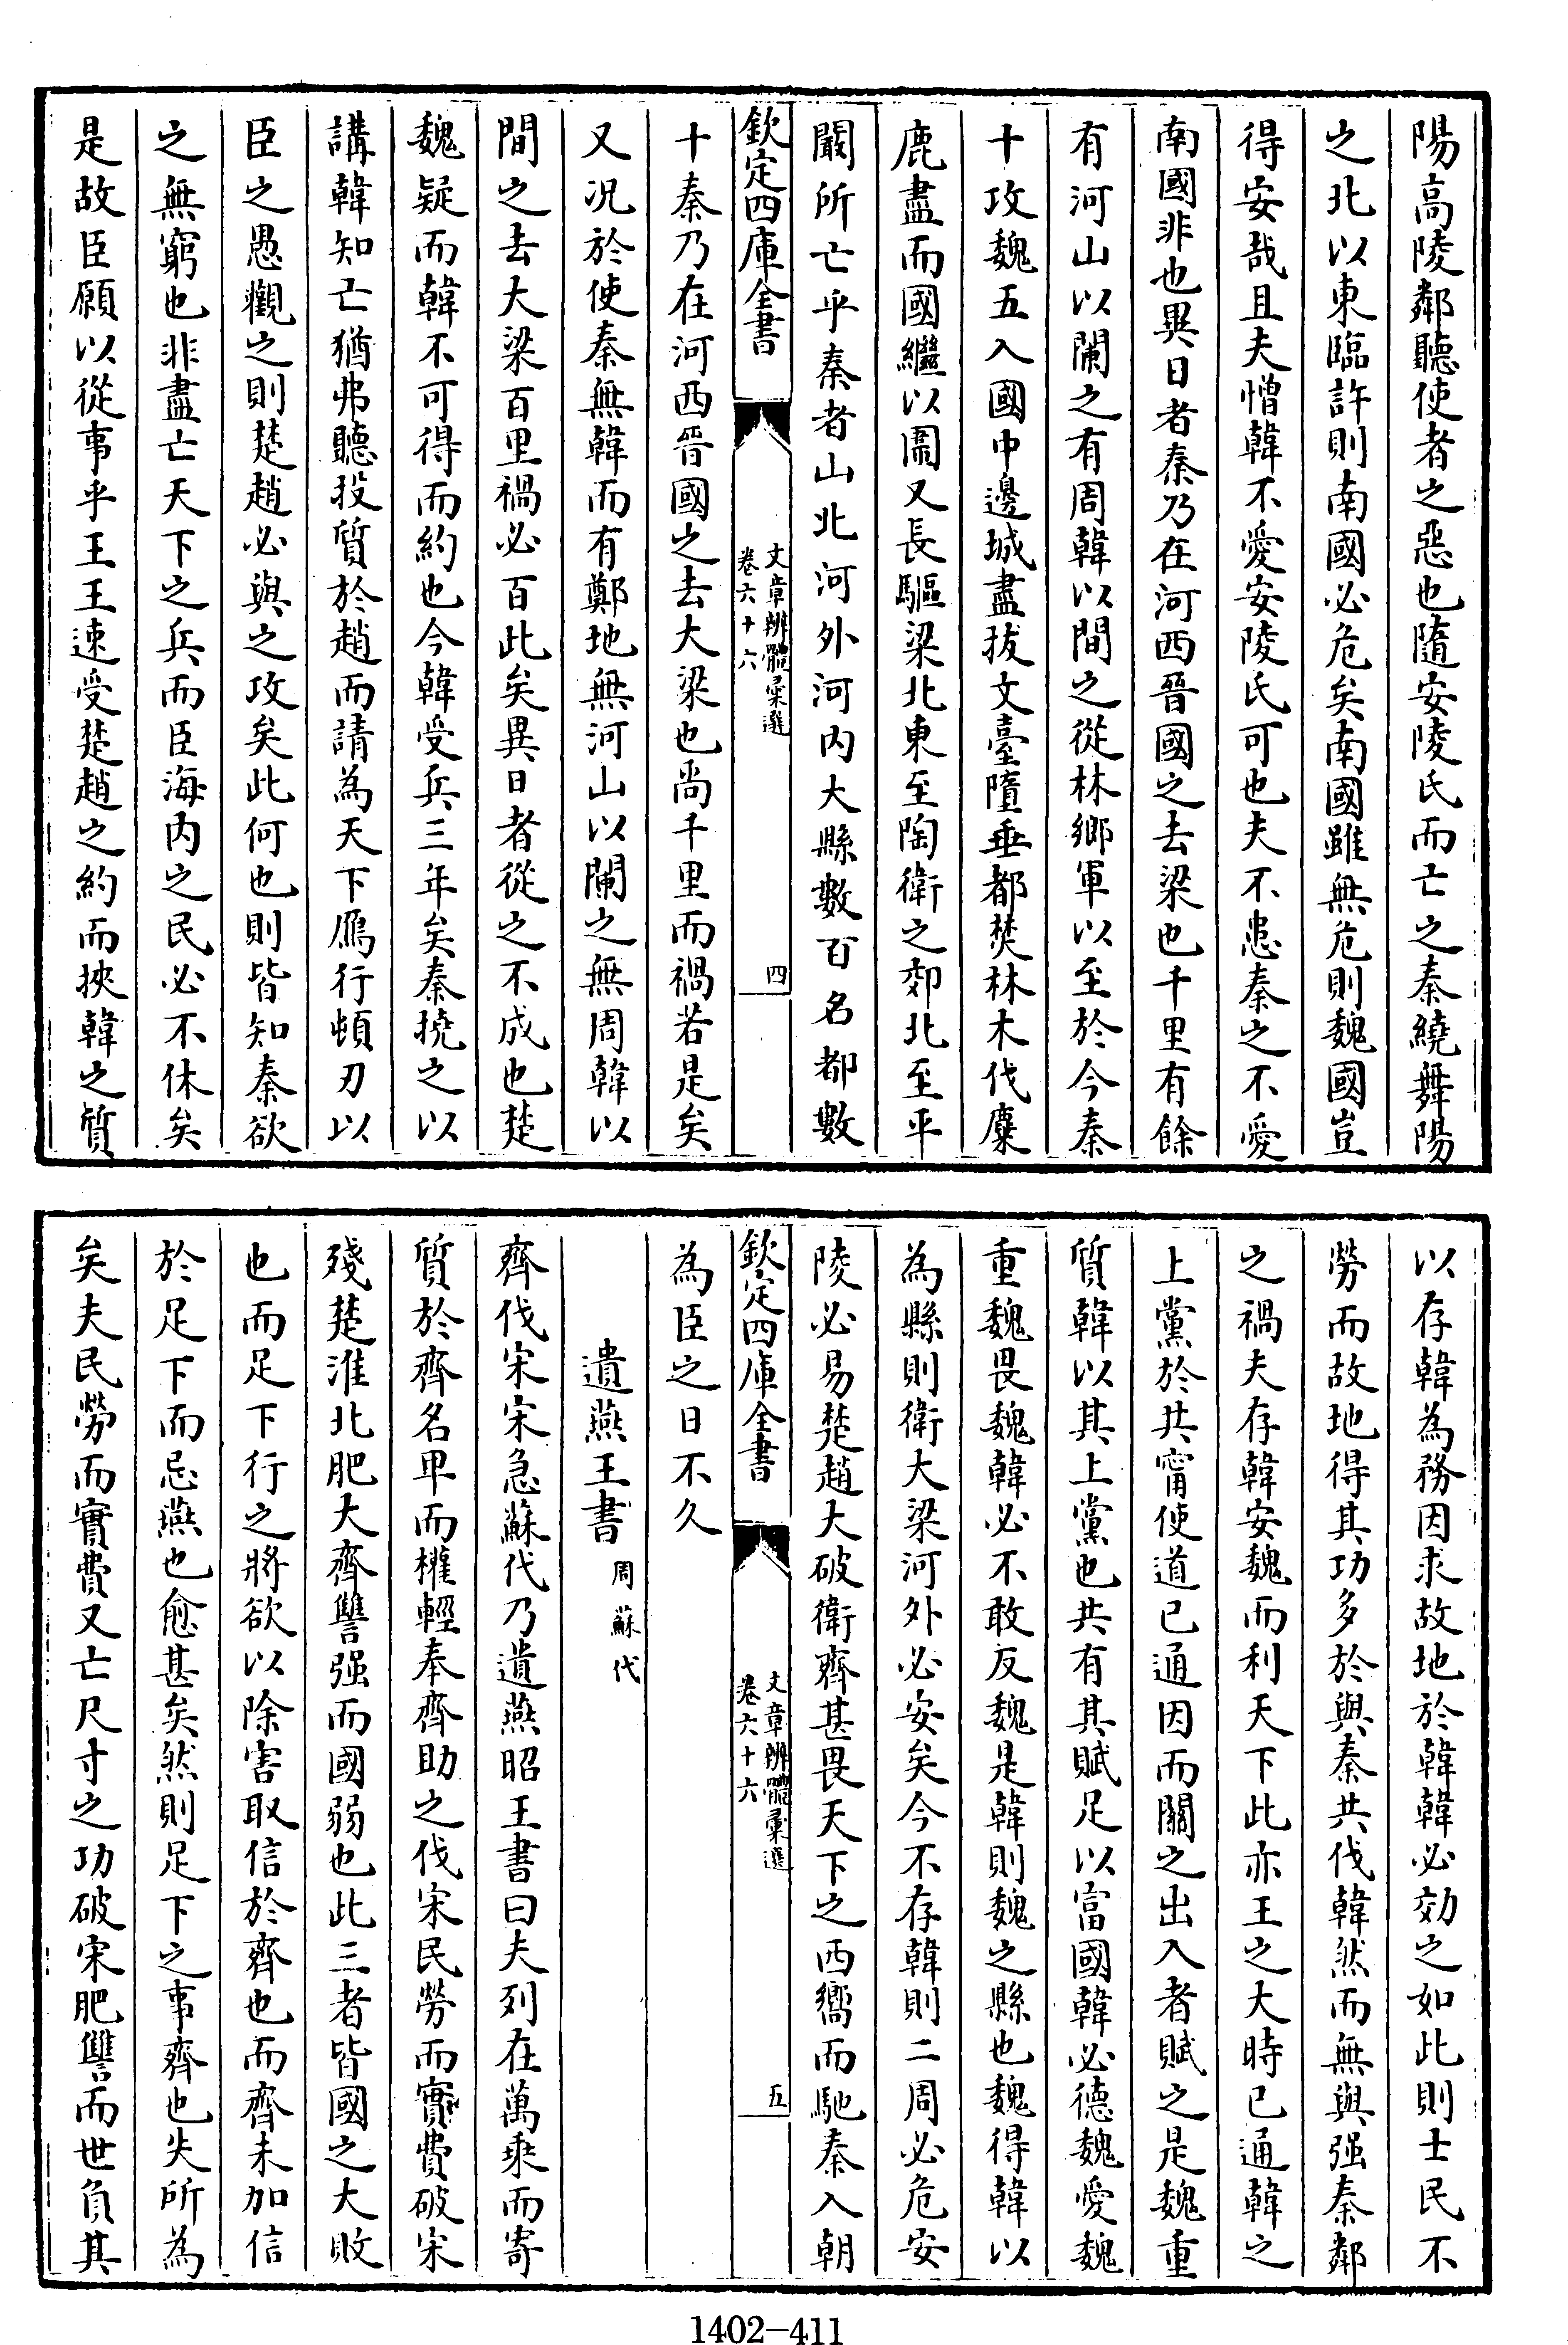 陽高陵鄰聽使者之惡也隨安陵氏而亡之秦繞舞陽
之北以東臨許則南國必危矣南國雖無危則魏國豈
得安哉且夫憎韓不愛安陵氏可也夫不患秦之不愛
南國非也異日者秦乃在河西晉國之去梁也千里有餘
有河山以闌之有周韓以間之從林鄉軍以至於今秦
十攻魏五入國中邊城盡拔文臺墮垂都焚林木伐麋
鹿盡而國繼以圍又長驅梁北東至陶衛之郊北至平
闞所亡乎秦者山北河外河内大縣數百名都數
欽定四庫全書
文章辨體彙選
卷六十六
四
十秦乃在河西晉國之去大梁也尚千里而禍若是矣
又况於使秦無韓而有鄭地無河山以闌之無周韓以
間之去大梁百里禍必百此矣異日者從之不成也楚
魏疑而韓不可得而約也今韓受兵三年矣秦撓之以
講韓知亡猶弗聽投質於趙而請為天下鴈行頓刃以
臣之愚觀之則楚趙必與之攻矣此何也則皆知秦欲
之無窮也非盡亡天下之兵而臣海内之民必不休矣
是故臣願以從事乎王王速受楚趙之約而挾韓之質
以存韓為務因求故地於韓韓必効之如此則士民不
勞而故地得其功多於與秦共伐韓然而無與强秦鄰
之禍夫存韓安魏而利天下此亦王之大時已通韓之
上黨於共甯使道已通因而關之出入者賦之是魏重
質韓以其上黨也共有其賦足以富國韓必德魏愛魏
重魏畏魏韓必不敢反魏是韓則魏之縣也魏得韓以
為縣則衛大梁河外必安矣今不存韓則二周必危安
陵必易楚趙大破衛齊甚畏天下之西嚮而馳秦入朝
欽定四庫全書
文章辨體彙選
卷六十六
五
為臣之日不久
遺燕王書 周蘇代
齊伐宋宋急蘇代乃遺燕昭王書曰夫列在萬乘而寄
質於齊名卑而權輕奉齊助之伐宋民勞而實費破宋
殘楚淮北肥大齊讐强而國弱也此三者皆國之大敗
也而足下行之將欲以除害取信於齊也而齊未加信
於足下而忌燕也愈甚矣然則足下之事齊也失所為
矣夫民勞而實費又亡尺寸之功破宋肥讐而世負其
1402-411